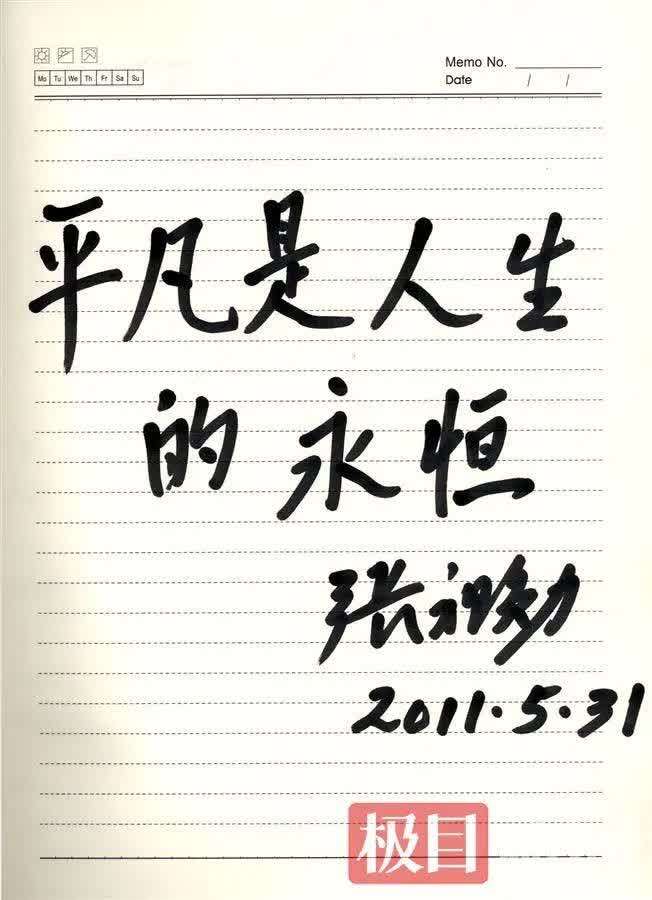 Memo No.
Mo Tu We Th Fr Sa Su
Date / /
平凡是人生
的永恒
张祖勋
2011.5.31
极目